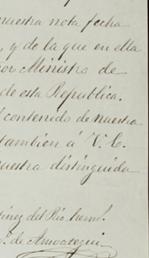 nuestra nota fecha
, y de la que en ella
or Ministro de
de esta Republica.
l contenido de nuestra
tambien á V. E.
nuestra distinguida
inez del Rio herm.
S. de Amoategui